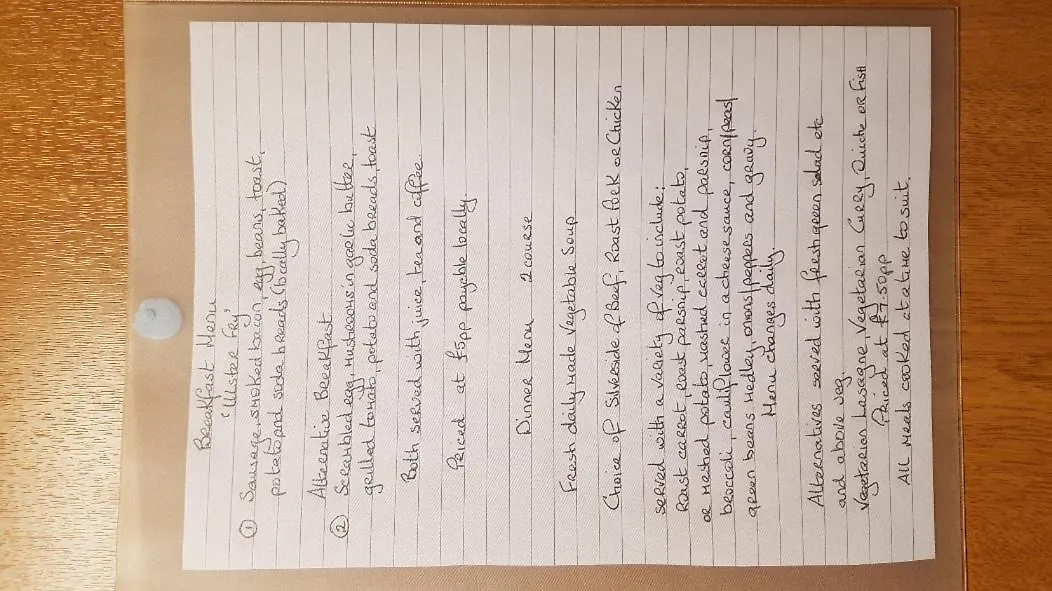 Breakfast Menu
'Ulster Fry'
① Sausage, smoked bacon, egg, beans, toast,
potato and soda breads (locally baked)
Alternative Breakfast
② Scrambled egg, mushrooms in garlic butter,
grilled tomato, potato and soda breads, toast
Both served with juice, tea and coffee.
Priced at £5pp payable locally.
Dinner Menu 2 course
Fresh daily made Vegetable Soup
Choice of Silverside of Beef, Roast Pork or Chicken
served with a variety of veg to include:
Roast carrot, roast parsnip, roast potato,
or mashed potato, mashed carrot and parsnip,
broccoli, cauliflower in a cheese sauce, corn/peas/
green beans medley, onions/peppers and gravy.
Menu changes daily.
Alternatives served with fresh green salad etc
and above veg.
Vegetarian Lasagne, Vegetarian Curry, Quiche or Fish
Priced at £7.50pp
All meals cooked at a time to suit.